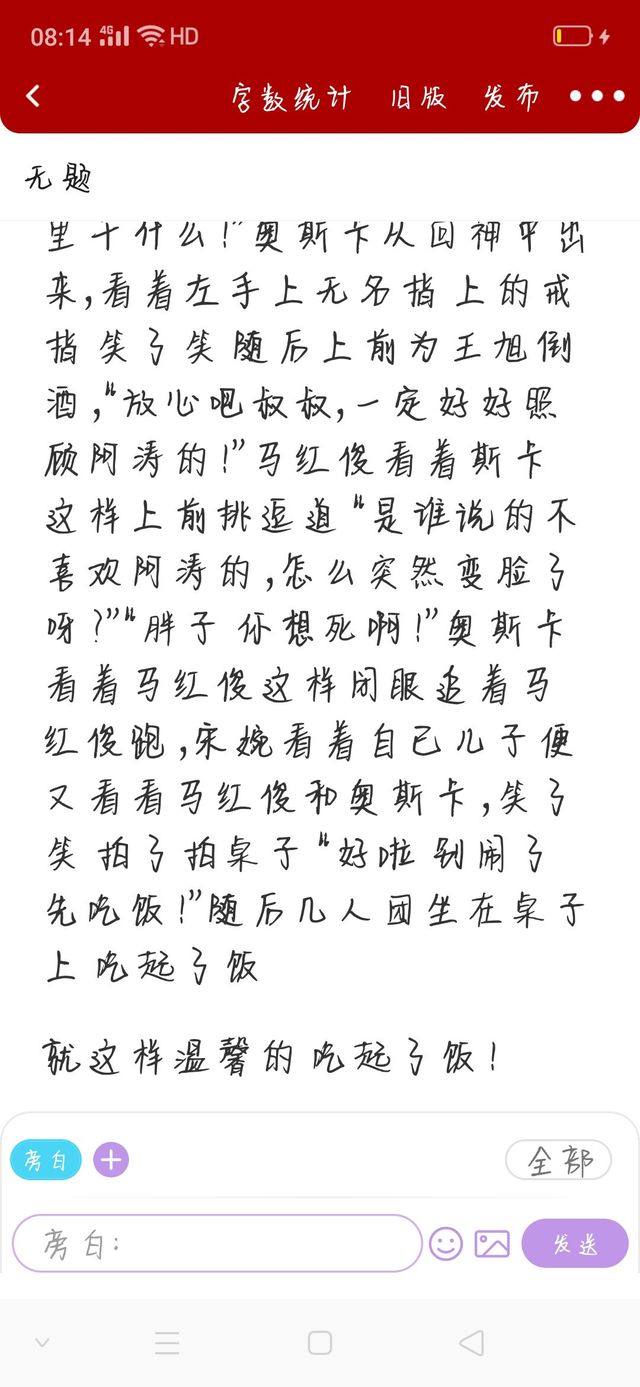 08:14 4G HD
字数统计 旧版 发布
无题
里干什么！”奥斯卡从回神中出
来，看着左手上无名指上的戒
指笑了笑随后上前为王旭倒
酒，“放心吧叔叔，一定好好照
顾阿涛的！”马红俊看着斯卡
这样上前挑逗道“是谁说的不
喜欢阿涛的，怎么突然变脸了
呀？”“胖子你想死啊！”奥斯卡
看着马红俊这样闭眼追着马
红俊跑，宋婉看着自已儿子便
又看看马红俊和奥斯卡，笑了
笑拍了拍桌子“好啦别闹了
先吃饭！”随后几人团坐在桌子
上吃起了饭
就这样温馨的吃起了饭！
旁白
全部
旁白：
发送